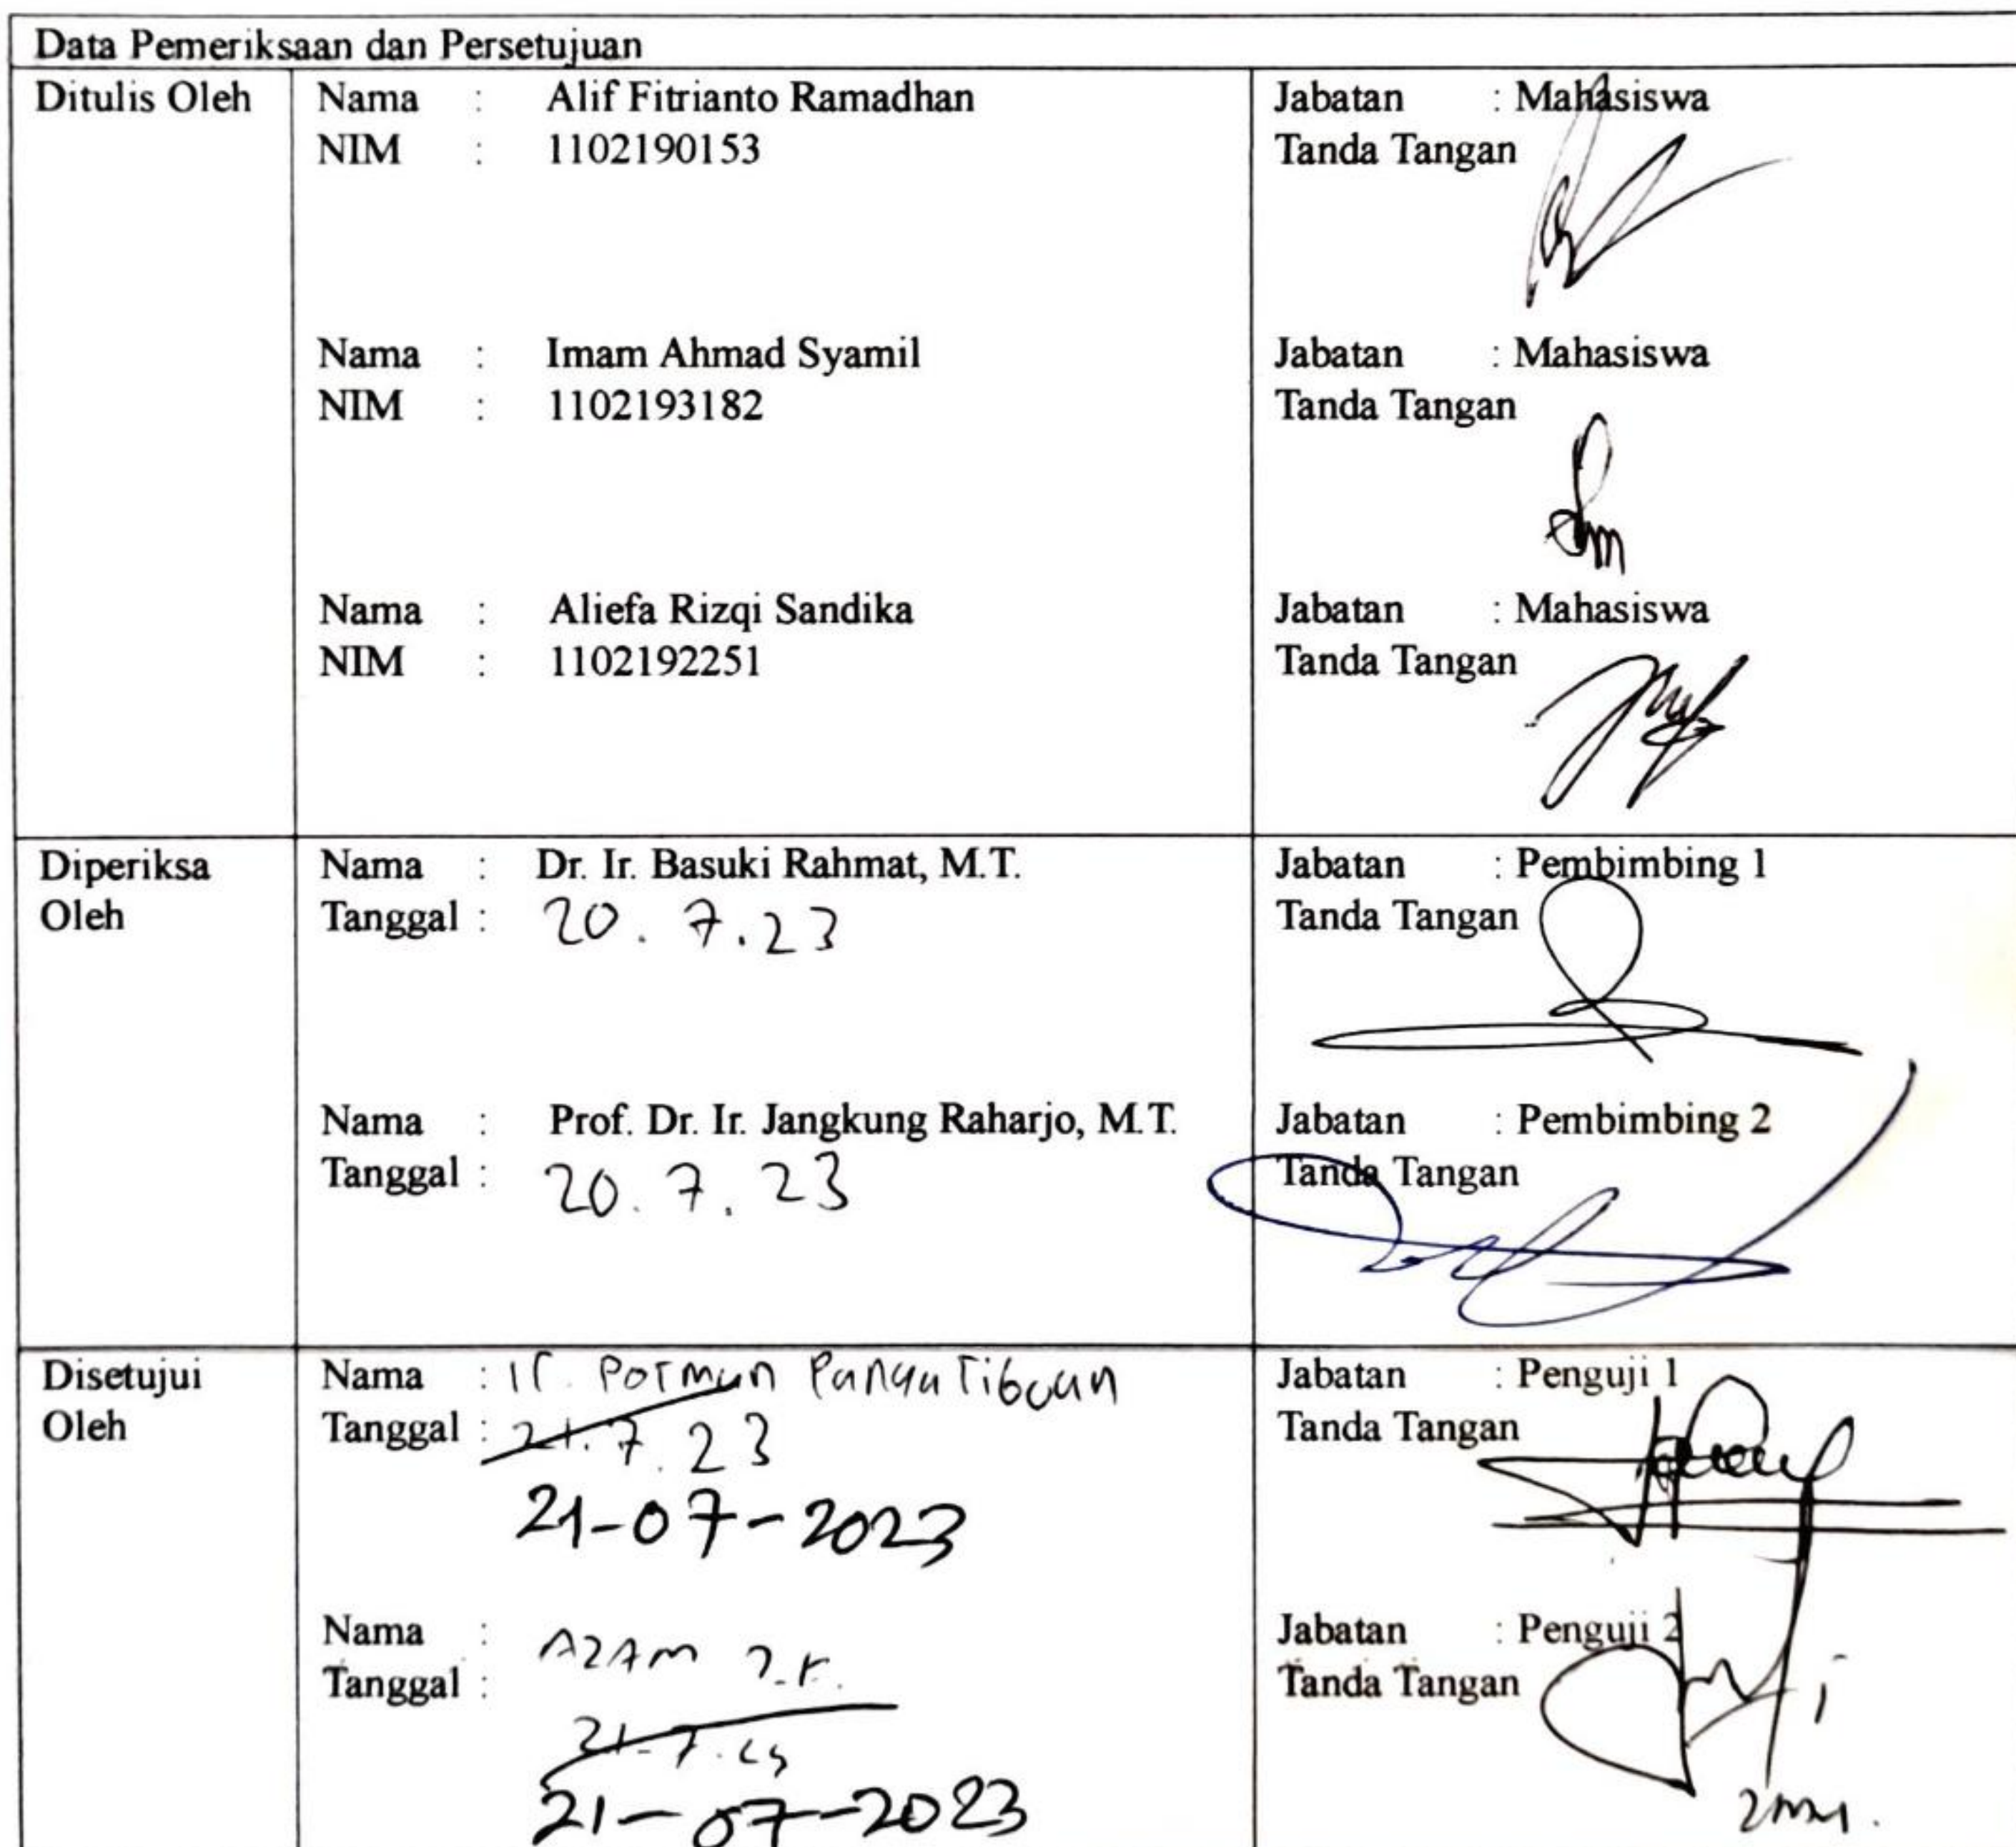 Data Pemeriksaan dan Persetujuan
Ditulis Oleh
Nama : Alif Fitrianto Ramadhan
NIM : 1102190153
Jabatan : Mahasiswa
Tanda Tangan
Nama : Imam Ahmad Syamil
NIM : 1102193182
Jabatan : Mahasiswa
Tanda Tangan
Nama : Aliefa Rizqi Sandika
NIM : 1102192251
Jabatan : Mahasiswa
Tanda Tangan
Diperiksa
Oleh
Nama : Dr. Ir. Basuki Rahmat, M.T.
Tanggal : 20.7.23
Jabatan : Pembimbing 1
Tanda Tangan
Nama : Prof. Dr. Ir. Jangkung Raharjo, M.T.
Tanggal : 20.7.23
Jabatan : Pembimbing 2
Tanda Tangan
Disetujui
Oleh
Nama : Ir. Porman
Tanggal : 21.7.23
21-07-2023
Jabatan : Penguji 1
Tanda Tangan
Nama : AZAM
Tanggal :
21-07-2023
Jabatan : Penguji 2
Tanda Tangan